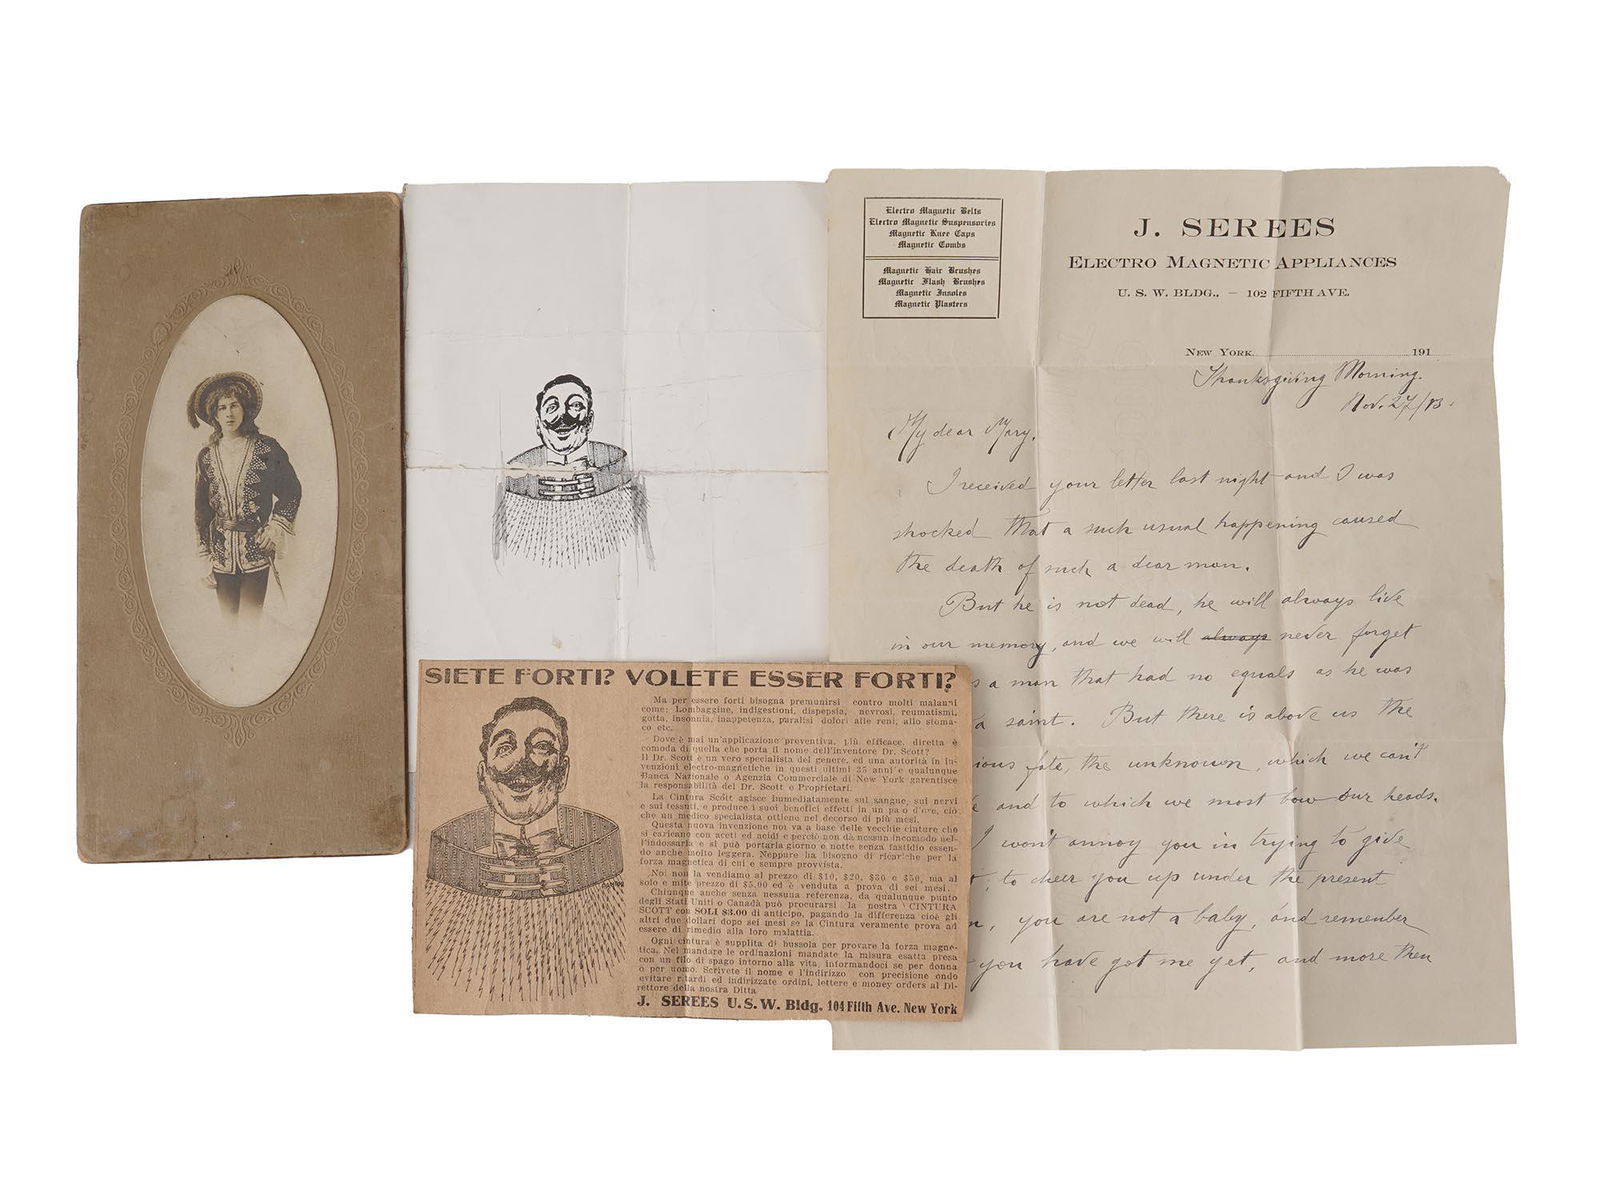 Electro Magnetic Belts
Electro Magnetic Suspensories
Magnetic Knee Caps
Magnetic Combs
Magnetic Hair Brushes
Magnetic Flash Brushes
Magnetic Insoles
Magnetic Plasters
J. SEREES
ELECTRO MAGNETIC APPLIANCES
U. S. W. BLDG., — 102 FIFTH AVE.
NEW YORK 191
Thanksgiving Morning.
Nov. 27/13.
My dear Mary,
I received your letter last night and I was
shocked that a such usual happening caused
the death of such a dear man.
But he is not dead, he will always live
in our memory, and we will always never forget
a man that had no equals as he was
a saint. But there is above us the
fate, the unknown, which we can't
and to which we most bow our heads.
I won't annoy you in trying to give
to cheer you up under the present
you are not a baby, and remember
you have got me yet, and more then
SIETE FORTI? VOLETE ESSER FORTI?
Ma per essere forti bisogna premunirsi contro molti malanni
come: Lombaggine, indigestioni, dispepsia, nevrosi, reumatismi,
gotta, insonnia, inappetenza, paralisi dolori alle reni, allo stoma-
co etc.
Dove è mai un'applicazione preventiva, più efficace, diretta e
comoda di quella che porta il nome dell'inventore Dr. Scott?
Il Dr. Scott è un vero specialista del genere, ed una autorità in in-
venzioni electro-magnetiche in questi ultimi 35 anni e qualunque
Banca Nazionale o Agenzia Commerciale di New York garentisce
la responsabilità del Dr. Scott e Proprietari.
La Cintura Scott agisce immediatamente sul sangue, sui nervi
e sui tessuti, e produce i suoi benefici effetti in un paio d'ore, ciò
che un medico specialista ottiene nel decorso di più mesi.
Questa nuova invenzione noi va a base delle vecchie cinture che
si caricano con aceti ed acidi e perciò non dà nessun incomodo nel-
l'indossarla e si può portarla giorno e notte senza fastidio essen-
do anche molto leggera. Neppure ha bisogno di ricariche per la
forza magnetica di cui è sempre provvista.
Noi non la vendiamo al prezzo di $10, $20, $30 e $50, ma al
solo e mite prezzo di $5.00 ed è venduta a prova di sei mesi.
Chiunque anche senza nessuna referenza, da qualunque punto
degli Stati Uniti o Canadà può procurarsi la nostra CINTURA
SCOTT con SOLI $3.00 di anticipo, pagando la differenza cioè gli
altri due dollari dopo sei mesi se la Cintura veramente prova ad
essere di rimedio alla loro malattia.
Ogni cintura è supplita di bussola per provare la forza magne-
tica. Nel mandare le ordinazioni mandate la misura esatta presa
con un filo di spago intorno alla vita, informandoci se per donna
o per uomo. Scrivete il nome e l'indirizzo con precisione ondo
evitare ritardi ed indirizzate ordini, lettere e money orders al Di-
rettore della nostra Ditta
J. SEREES U.S.W. Bldg. 104 Fifth Ave. New York